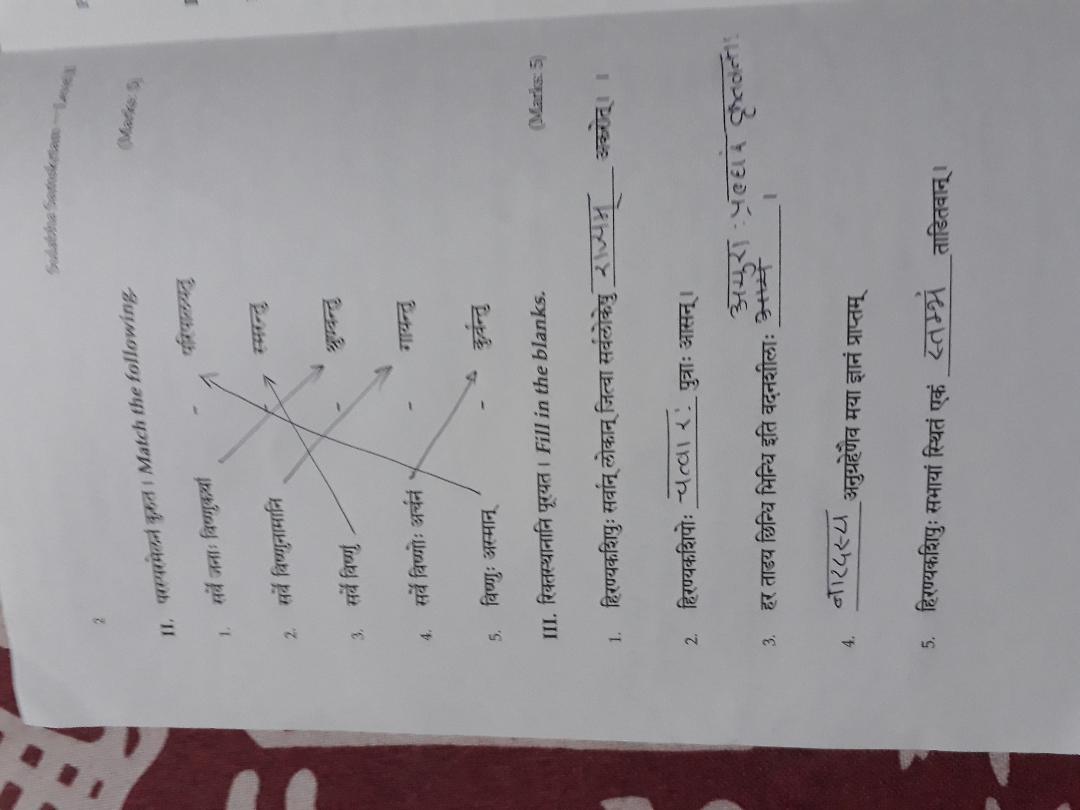 Sulabha Samskritam — Level
2
II. परस्परमेलनं कुरुत। Match the following. (Marks: 5)
1. सर्वे जनाः विष्णुकथां - परिपालयतु
2. सर्वे विष्णुनामानि - स्मरन्तु
3. सर्वे विष्णुं - श्रुण्वन्तु
4. सर्वे विष्णोः अर्चनं - गायन्तु
5. विष्णुः अस्मान् - कुर्वन्तु
III. रिक्तस्थानानि पूरयत। Fill in the blanks. (Marks: 5)
1. हिरण्यकशिपुः सर्वान् लोकान् जित्वा सर्वलोकेषु राज्यम् अकरोत्। ।
2. हिरण्यकशिपोः चत्वारः पुत्राः आसन्।
असुराः प्रल्हादं कृतवन्तः
3. हर ताडय छिन्धि भिन्धि इति वदनशीलाः ।
4. नारदस्य अनुग्रहेणैव मया ज्ञानं प्राप्तम्
5. हिरण्यकशिपुः सभायां स्थितं एकं स्तम्भं ताडितवान्।